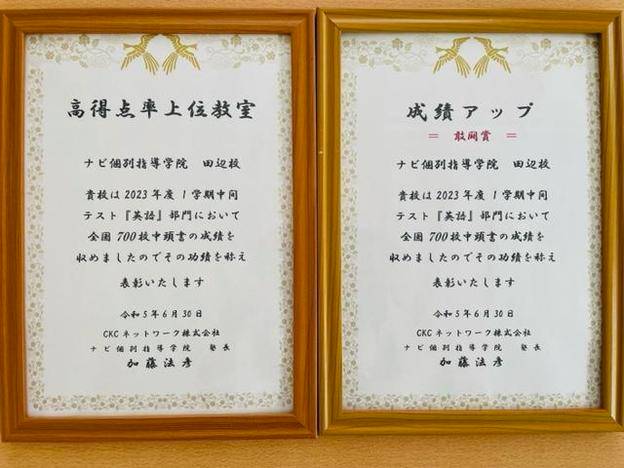 高得点率上位教室
ナビ個別指導学院 田辺校
貴校は2023年度1学期中間
テスト『英語』部門において
全国700校中頭書の成績を
収めましたのでその功績を称え
表彰いたします
令和5年6月30日
CKCネットワーク株式会社
ナビ個別指導学院 塾長
加藤法彦
成績アップ
= 敢闘賞 =
ナビ個別指導学院 田辺校
貴校は2023年度1学期中間
テスト『英語』部門において
全国700校中頭書の成績を
収めましたのでその功績を称え
表彰いたします
令和5年6月30日
CKCネットワーク株式会社
ナビ個別指導学院 塾長
加藤法彦